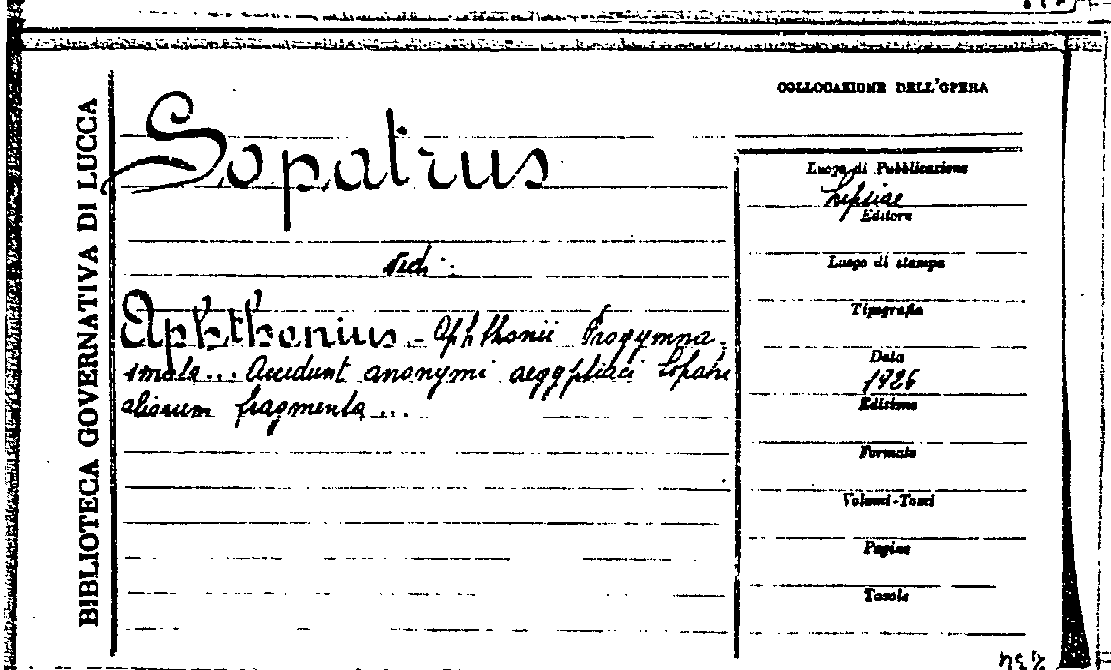 BIBLIOTECA GOVERNATIVA DI LUCCA
Sopatrus
Vedi:
Aphthonius - Aphthonii Progymna-
smata... Accedunt anonymi aegyptiaci Sopatri
aliorum fragmenta...
COLLOCAZIONE DELL'OPERA
Luogo di Pubblicazione
Lipsiae
Editore
Luogo di stampa
Tipografia
Data
1926
Edizione
Formato
Volumi-Tomi
Pagine
Tavole